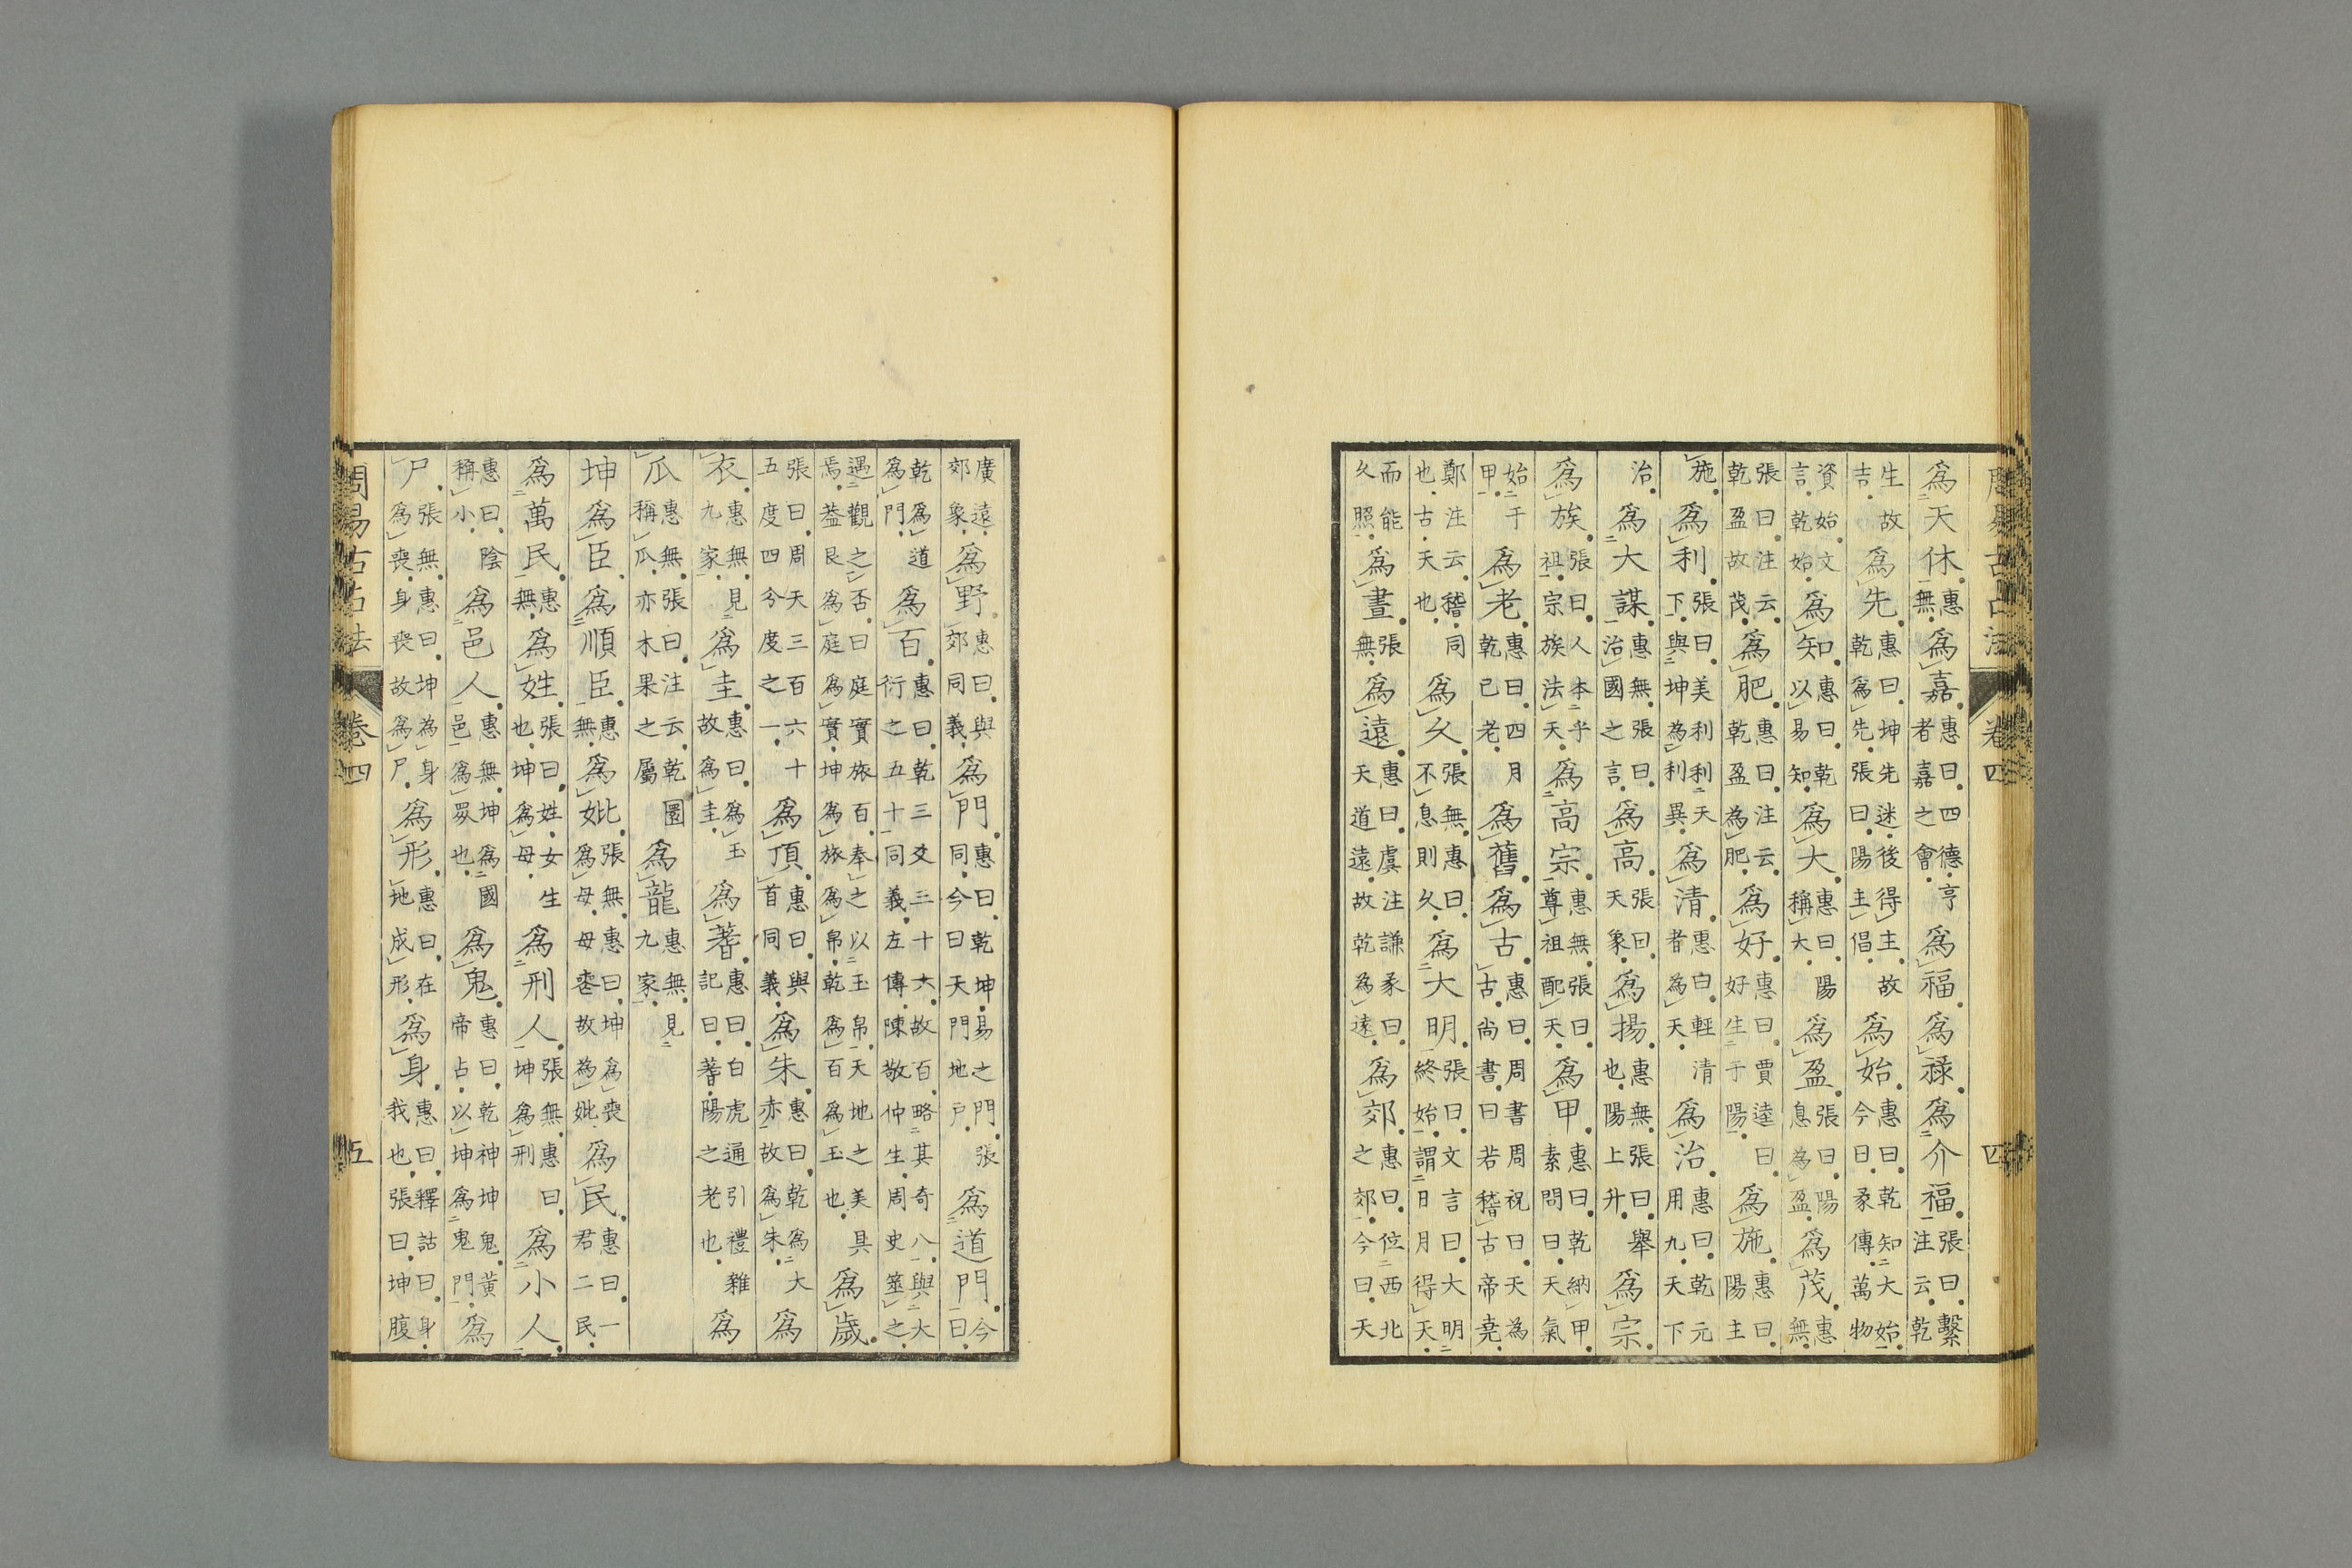 周易古占法 卷四 四
爲天休惠無爲嘉惠曰四德亨者嘉之會爲福爲祿爲介福張曰繫注云乾
生故吉爲先惠曰坤先迷後得主故乾爲先張曰陽主倡爲始惠曰乾知大始今曰彖傳萬物
資始文言乾始爲知惠曰乾以易知爲大惠曰陽稱大爲盈張曰陽息爲盈爲茂惠無
張曰注云乾盈故茂爲肥惠曰注云乾盈為肥爲好惠曰賈逵曰好生于陽爲施惠曰陽主
施爲利張曰美利利天下與坤為利異爲清惠曰輕清者為天爲治惠曰乾元用九天下
治爲大謀惠無張曰治國之言爲高張曰天象爲揚惠無張曰舉也陽上升爲宗
爲族張曰人本乎祖宗族法天爲高宗惠無張曰尊祖配天爲甲惠曰乾納甲素問曰天氣
始于甲爲老惠曰四月乾已老爲舊爲古惠曰周書周祝曰天為古尚書曰若稽古帝堯
鄭注云稽同也古天也爲久張無惠曰不息則久爲大明張曰文言曰大明終始謂日月得天
而能久照爲晝張無爲遠惠曰虞注謙彖曰天道遠故乾為遠爲郊惠曰位西北之郊今曰天
廣遠郊象爲野惠曰與郊同義爲門惠曰乾坤易之門張同今曰天門地戸爲道門今曰
乾爲道爲門爲百惠曰乾三爻三十六故百略其奇八與大衍之五十同義左傳陳敬仲生周史筮之
遇觀之否曰庭實旅百奉之以玉帛天地之美具焉蓋艮爲庭爲實坤爲旅爲帛乾爲百爲玉也爲歲
張曰周天三百六十五度四分度之一爲頂惠曰與首同義爲朱惠曰乾爲大赤故爲朱爲
衣惠無見九家爲圭惠曰爲玉故爲圭爲蓍惠曰白虎通引禮雜記曰蓍陽之老也爲
瓜惠無張曰注云乾圜稱瓜亦木果之屬爲龍惠無見九家
坤爲臣爲順臣惠無爲妣張無惠曰坤爲喪爲母母喪故為妣爲民惠曰一君二民
爲萬民惠無爲姓張曰姓女生也坤爲母爲刑人張無惠曰坤爲刑爲小人
惠曰陰稱小爲邑人惠無坤爲國邑爲眾也爲鬼惠曰乾神坤鬼黃帝占以坤爲鬼門爲
尸張無惠曰坤為身爲喪身喪故爲尸爲形惠曰在地成形爲身惠曰釋詁曰身我也張曰坤腹
周易古占法 卷四 五